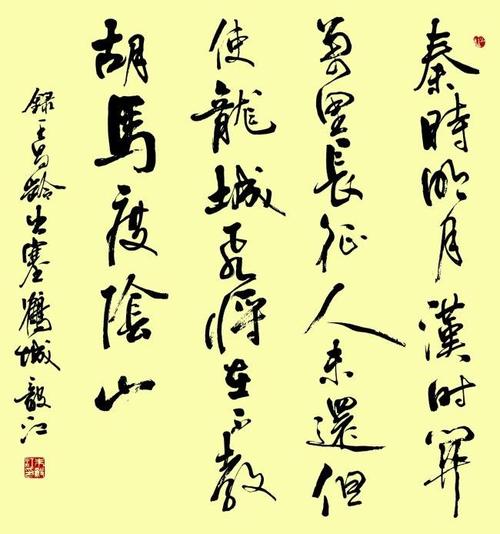 秦時明月漢时関
萬里長征人未還但
使龍城飛將在不教
胡馬度陰山
録王昌齡出塞鶴城毅江